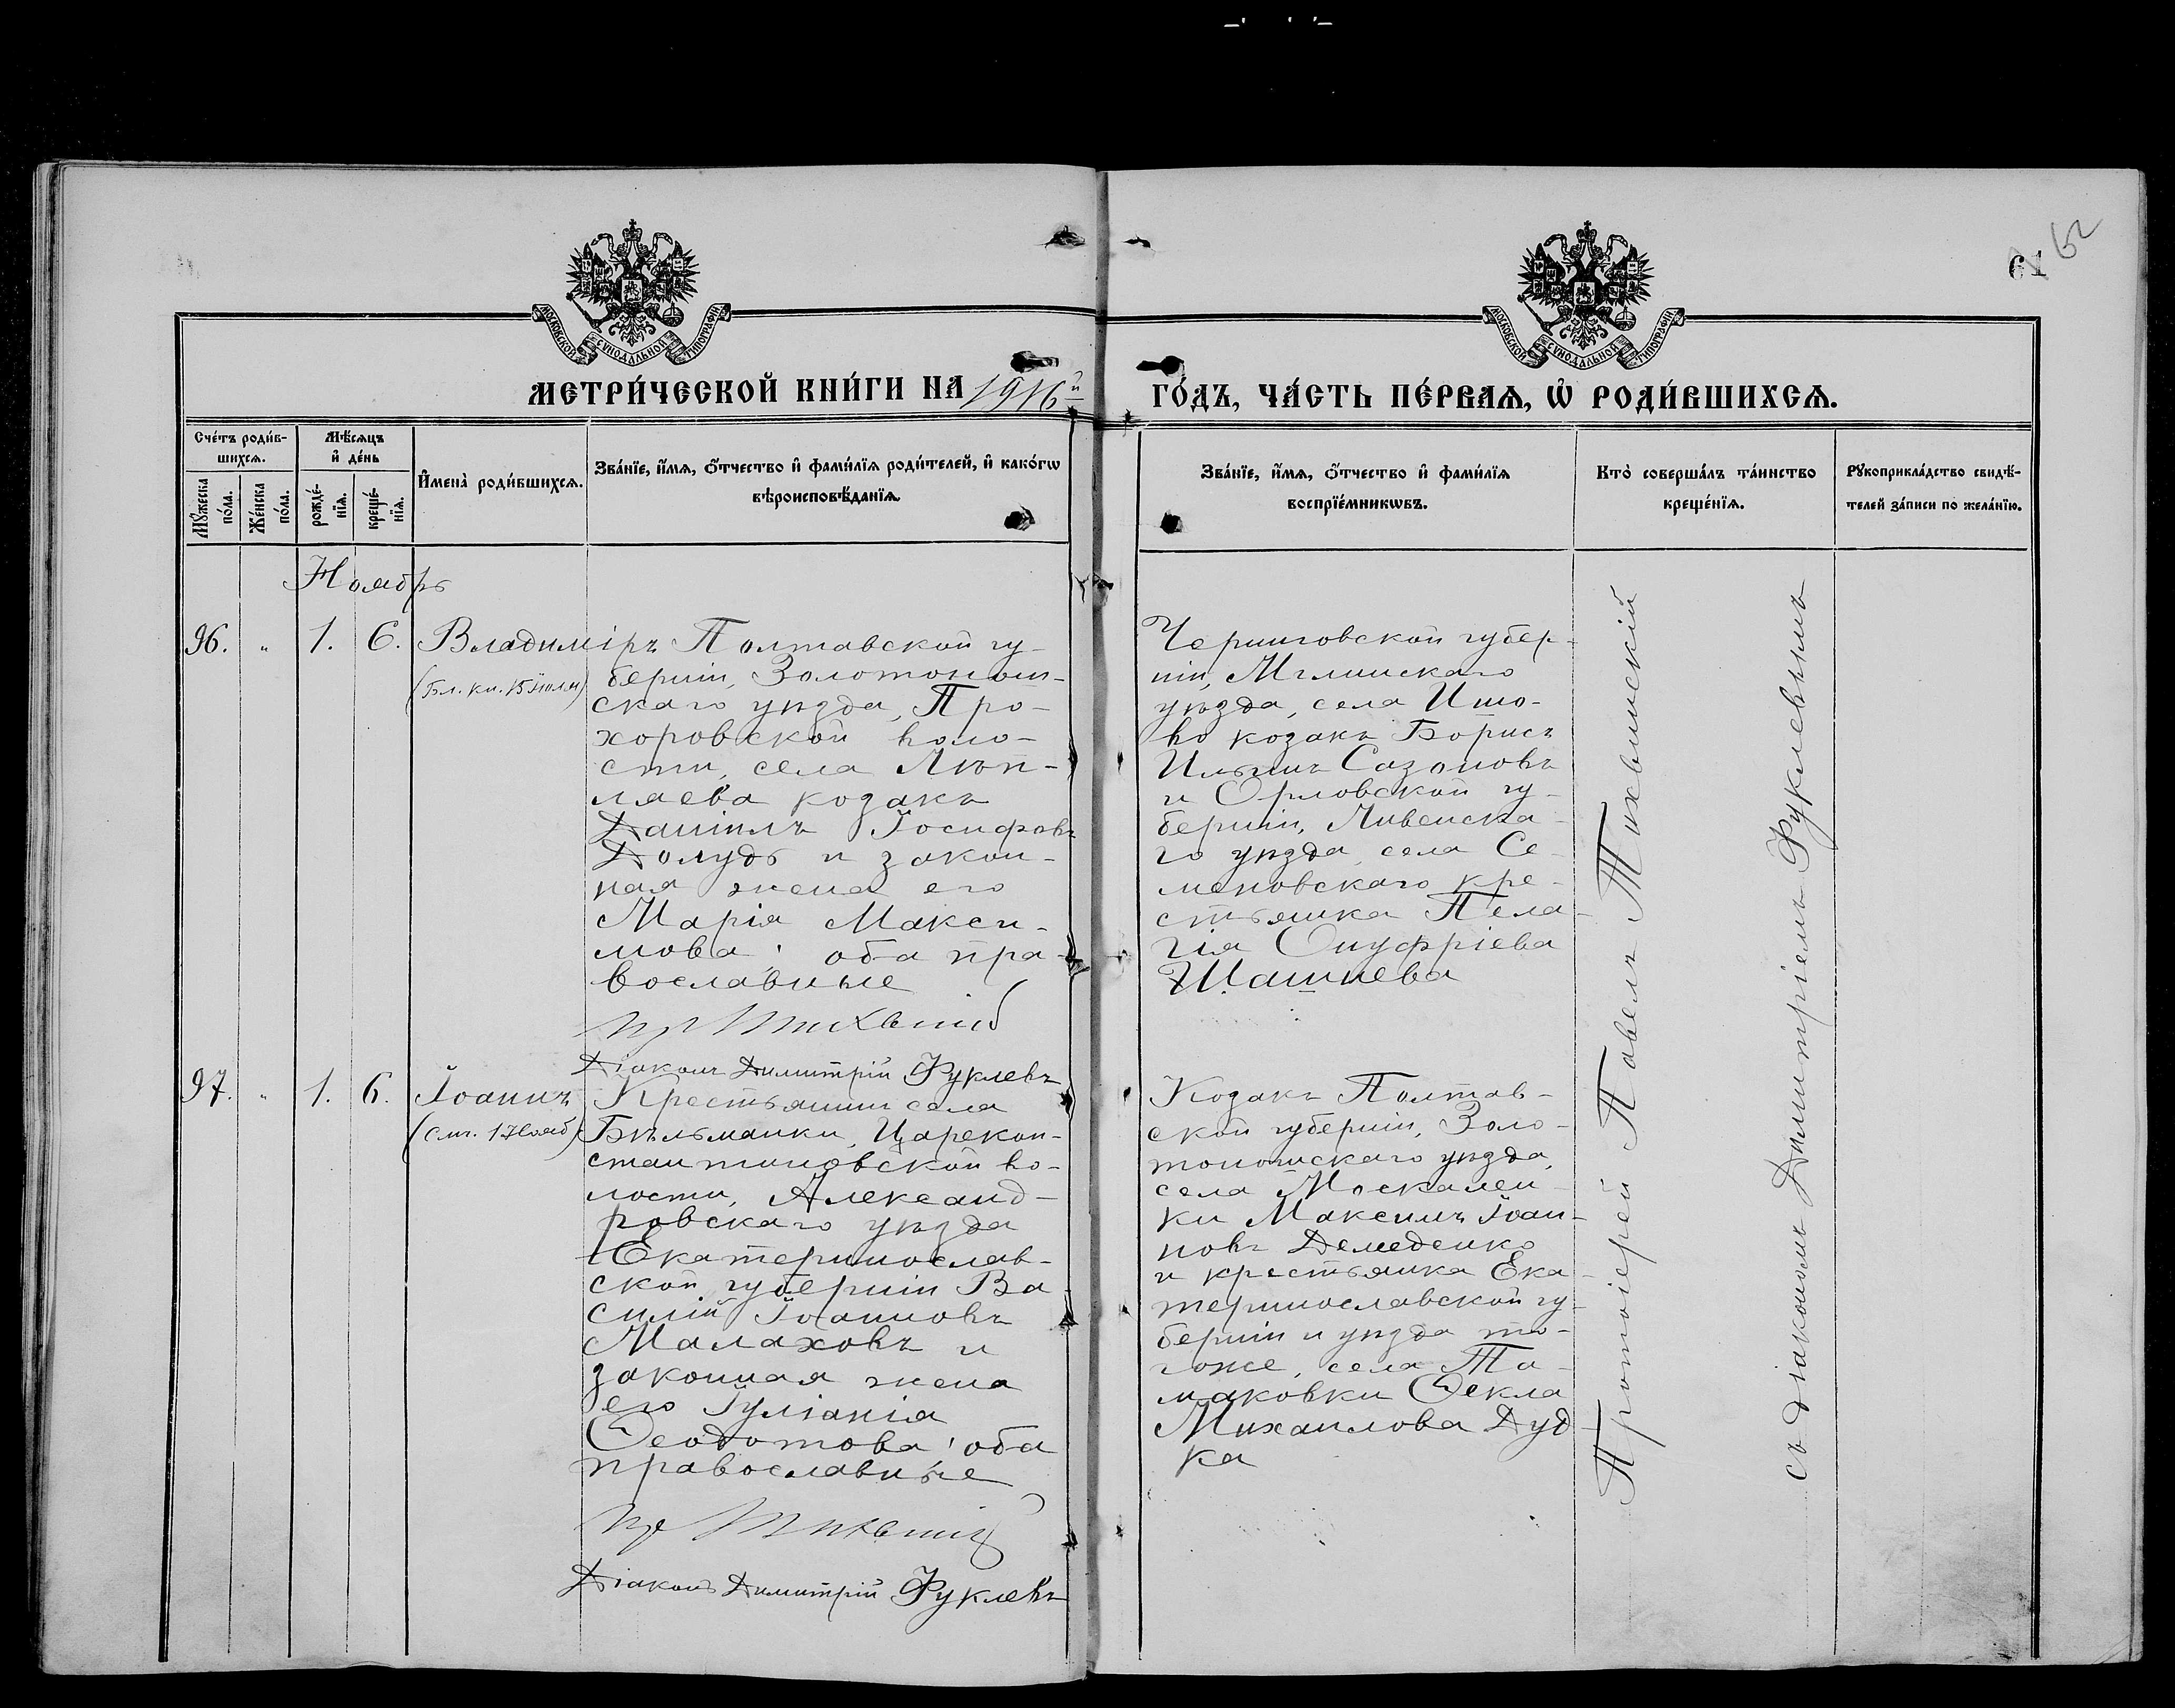 61 62
МОСКОВСКОЙ СѴНОДАЛЬНОЙ ТИПОГРАФІИ
МОСКОВСКОЙ СѴНОДАЛЬНОЙ ТИПОГРАФІИ
МЕТРИ́ЧЕСКОЙ КНИ́ГИ НА 1916й ГО́ДЪ, ЧА́СТЬ ПЕ́РВАѦ, Ѡ҆ РОДИ́ВШИХСѦ.
Сче́тъ роди́в-
шихсѧ.
Мꙋ́жеска по́ла.
Же́нска по́ла.
Мѣ́сѧцъ
и҆ де́нь
рожде́-
нїѧ.
креще́-
нїѧ.
И҆мена̀ роди́вшихсѧ.
Зва́нїе, и҆́мѧ, ѻ҆́тчество и҆ фами́лїѧ роди́телей, и҆ како́гѡ
вѣроисповѣ́данїѧ.
Зва́нїе, и҆́мѧ, ѻ҆́тчество и҆ фами́лїѧ
воспрїе́мникѡвъ.
Кто̀ соверша́лъ та́инство
креще́нїѧ.
Рꙋкоприкла́дство свидѣ́-
телей за́писи по жела́нїю.
Ноябрь
96. " 1. 6. Владиміръ
(Бл. кн. 15 іюля)
Полтавской гу-
берніи, Золотонош-
скаго уѣзда, Про-
хоровской воло-
сти, села Лѣп-
ляева козакъ
Даніилъ Іосифовъ
Долудь и закон-
ная жена его
Марія Макси-
мова; оба пра-
вославные
Діаконъ Димитрій Фуклевъ
Черниговской губер-
ніи, Мглинскаго
уѣзда, села
козакъ Борисъ
Ильинъ Сазоновъ
и Орловской гу-
берніи, Ливенска-
го уѣзда, села Се-
меновскаго кре-
стьянка Пела-
гія Онуфріева
Шашнева
97. " 1. 6. Іоаннъ
Крестьянинъ села
Бѣльманки, Царекон-
стантиновской во-
лости, Александ-
ровскаго уѣзда
Екатеринослав-
ской губерніи Ва-
силій Іоанновъ
Малаховъ и
законная жена
его Іуліанія
Ѳеодотова; оба
православные
Діаконъ Димитрій Фуклевъ
Козакъ Полтав-
ской губерніи, Золо-
тоношскаго уѣзда,
села Москален-
ки Максимъ Іоан-
новъ Демеденко
и крестьянка Ека-
теринославской гу-
берніи и уѣзда то-
гоже, села То-
маковки Ѳекла
Михаилова Дуд-
ка
Протоіерей Павелъ Тихвинскій
съ діакономъ Димитріемъ Фуклевымъ